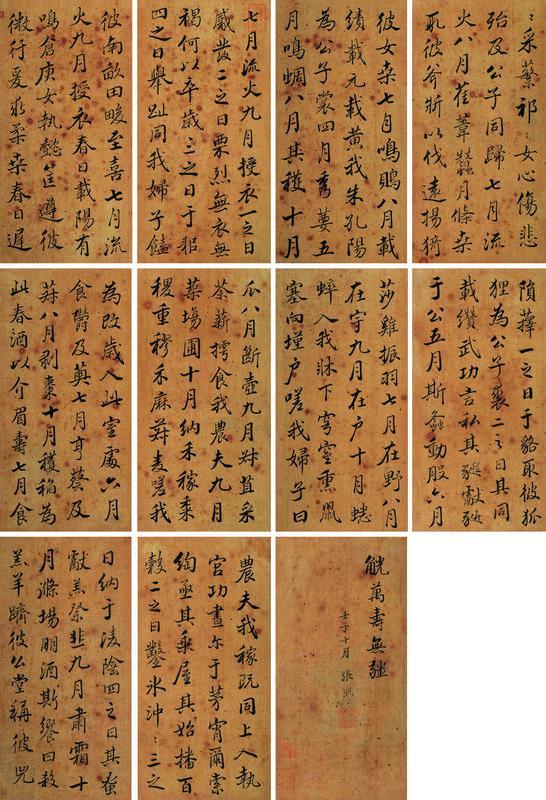 七月流火九月授衣一之日
觱發二之日栗烈無衣無
褐何以卒歲三之日于耜
四之日舉趾同我婦子饁
彼南畝田畯至喜七月流
火九月授衣春日載陽有
鳴倉庚女執懿筐遵彼
微行爰求柔桑春日遲
〻采蘩祁〻女心傷悲
殆及公子同歸七月流
火八月萑葦蠶月條桑
取彼斧斨以伐遠揚猗
彼女桑七月鳴鵙八月載
績載元載黃我朱孔陽
為公子裳四月秀葽五
月鳴蜩八月其穫十月
隕蘀一之日于貉取彼狐
狸為公子裘二之日其同
載纘武功言私其豵獻豜
于公五月斯螽動股六月
莎雞振羽七月在野八月
在宇九月在戶十月蟋
蟀入我牀下穹窒熏鼠
塞向墐戶嗟我婦子曰
為改歲入此室處六月
食鬱及薁七月亨葵及
菽八月剝棗十月穫稻為
此春酒以介眉壽七月食
瓜八月斷壺九月叔苴采
荼薪樗食我農夫九月
築場圃十月納禾稼黍
稷重穋禾麻菽麥嗟我
農夫我稼既同上入執
宮功晝爾于茅宵爾索
綯亟其乘屋其始播百
穀二之日鑿冰沖〻三之
日納于凌陰四之日其蚤
獻羔祭韭九月肅霜十
月滌場朋酒斯饗曰殺
羔羊躋彼公堂稱彼兕
觥萬壽無疆
壬子十月 張照